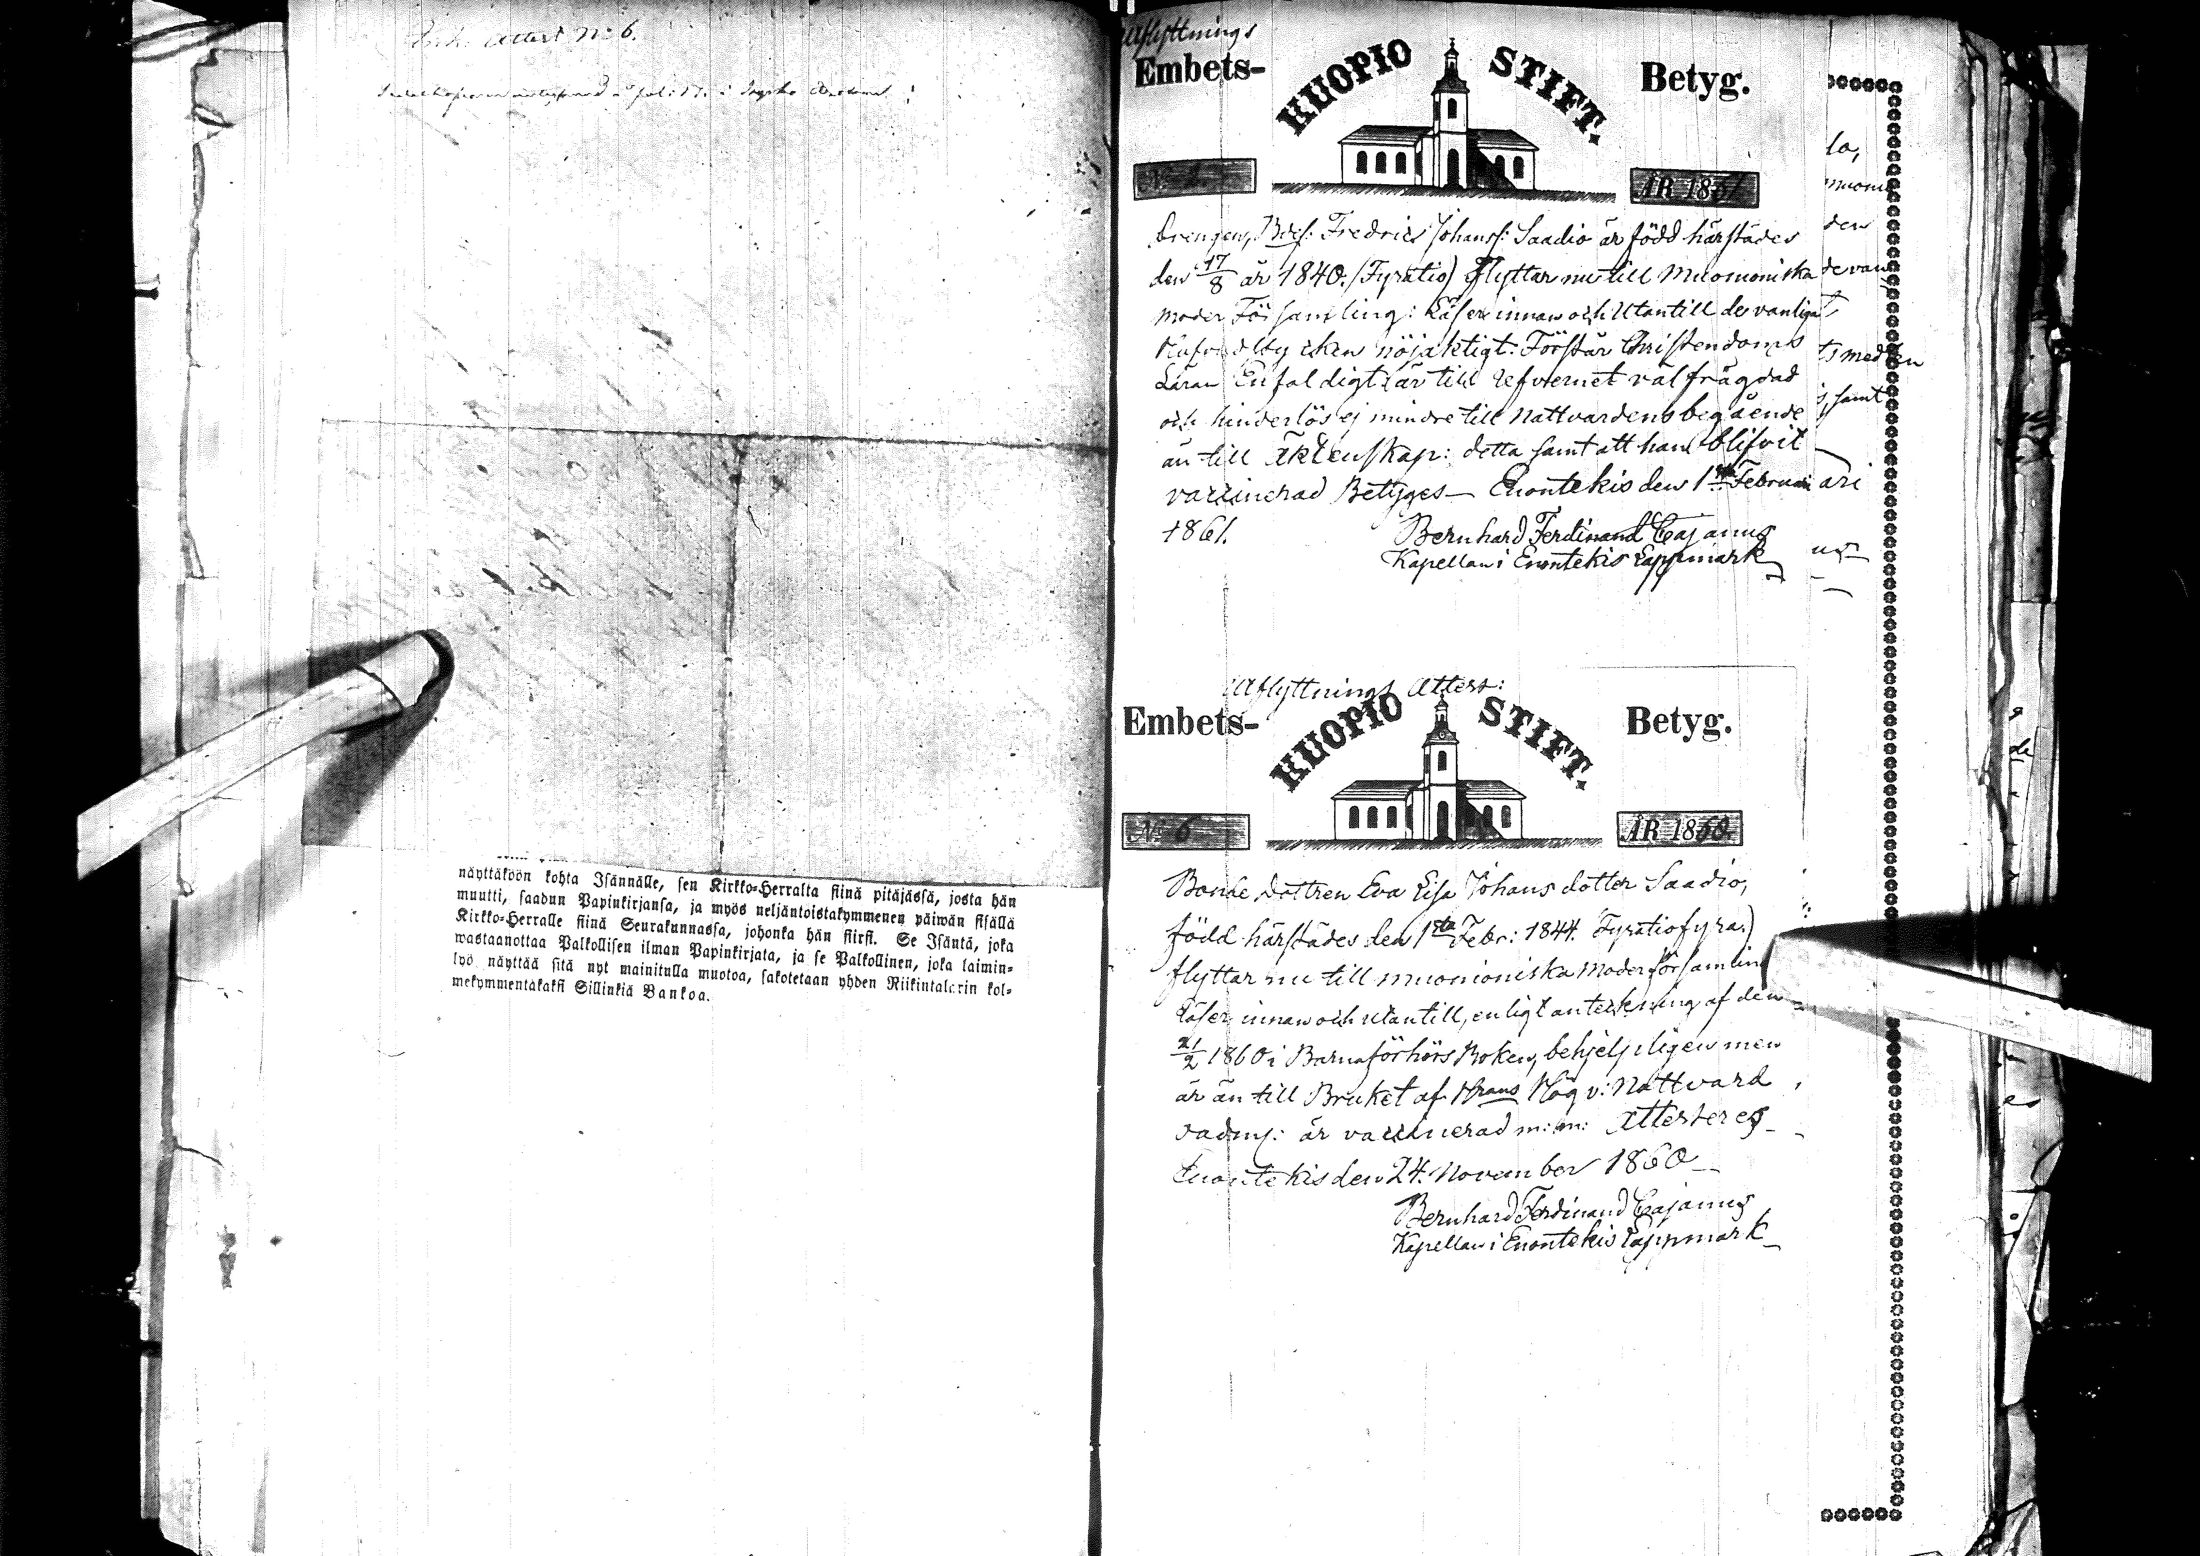 Attest No 6.
näyttäköön kohta Isännälle, sen Kirkko-Herralta siinä pitäjässä, josta hän
muutti, saadun Papinkirjansa, ja myös neljäntoistakymmenen päiwän sisällä
Kirkko-Herralle siinä Seurakunnassa, johonka hän siirsi. Se Isäntä, joka
wastaanottaa Palkollisen ilman Papinkirjata, ja se Palkollinen, joka laimin-
lyö näyttää sitä nyt mainitulla muotoa, sakotetaan yhden Riikintalerin kol-
mekymmentäkaksi Sillinkiä Bankoa.
Utflyttnings
Embets-
KUOPIO STIFT.
Betyg.
ÅR 1861
Drengen, Fredric Johanss: Saadio är född härstädes
den 17/8 år 1840. (Fyratio) flyttar nu till Muonioniska
moder Församling: Läser innan och Utantill de vanliga
nöjaktigt: Förstår Christendoms
Läran Enfaldigt: är till lefvernet välfrägdad
och hinderlös ej mindre till Nattvardens begående
än till Äktenskap: detta samt att han blifvit
vaccinerad Betyges— Enontekis den 1sta Februari
1861.
Bernhard Ferdinand Cajanus
Kapellan i Enontekis Lappmark
la,
den
de van
ts med
samt
ari
us
Utflyttnings Attest:
Embets-
KUOPIO STIFT.
Betyg.
No 6
ÅR 1860.
Bonde dottren Eva Lisa Johans dotter Saadio,
född härstädes den 1sta Febr: 1844. Fyratiofyra.)
flyttar nu till Muonioniska Moderförsamlin
Läser innan och utantill, enligt anteckning af den
21/2 1860 i Barnaförhörs Boken, behjelpligen men
är än till Bruket af Hrans Hög v: Nattvard
är vaccinerad m: m: Attesteres—
Enontekis den 24. November 1860—
Bernhard Ferdinand Cajanus
Kapellan i Enontekis Lappmark—